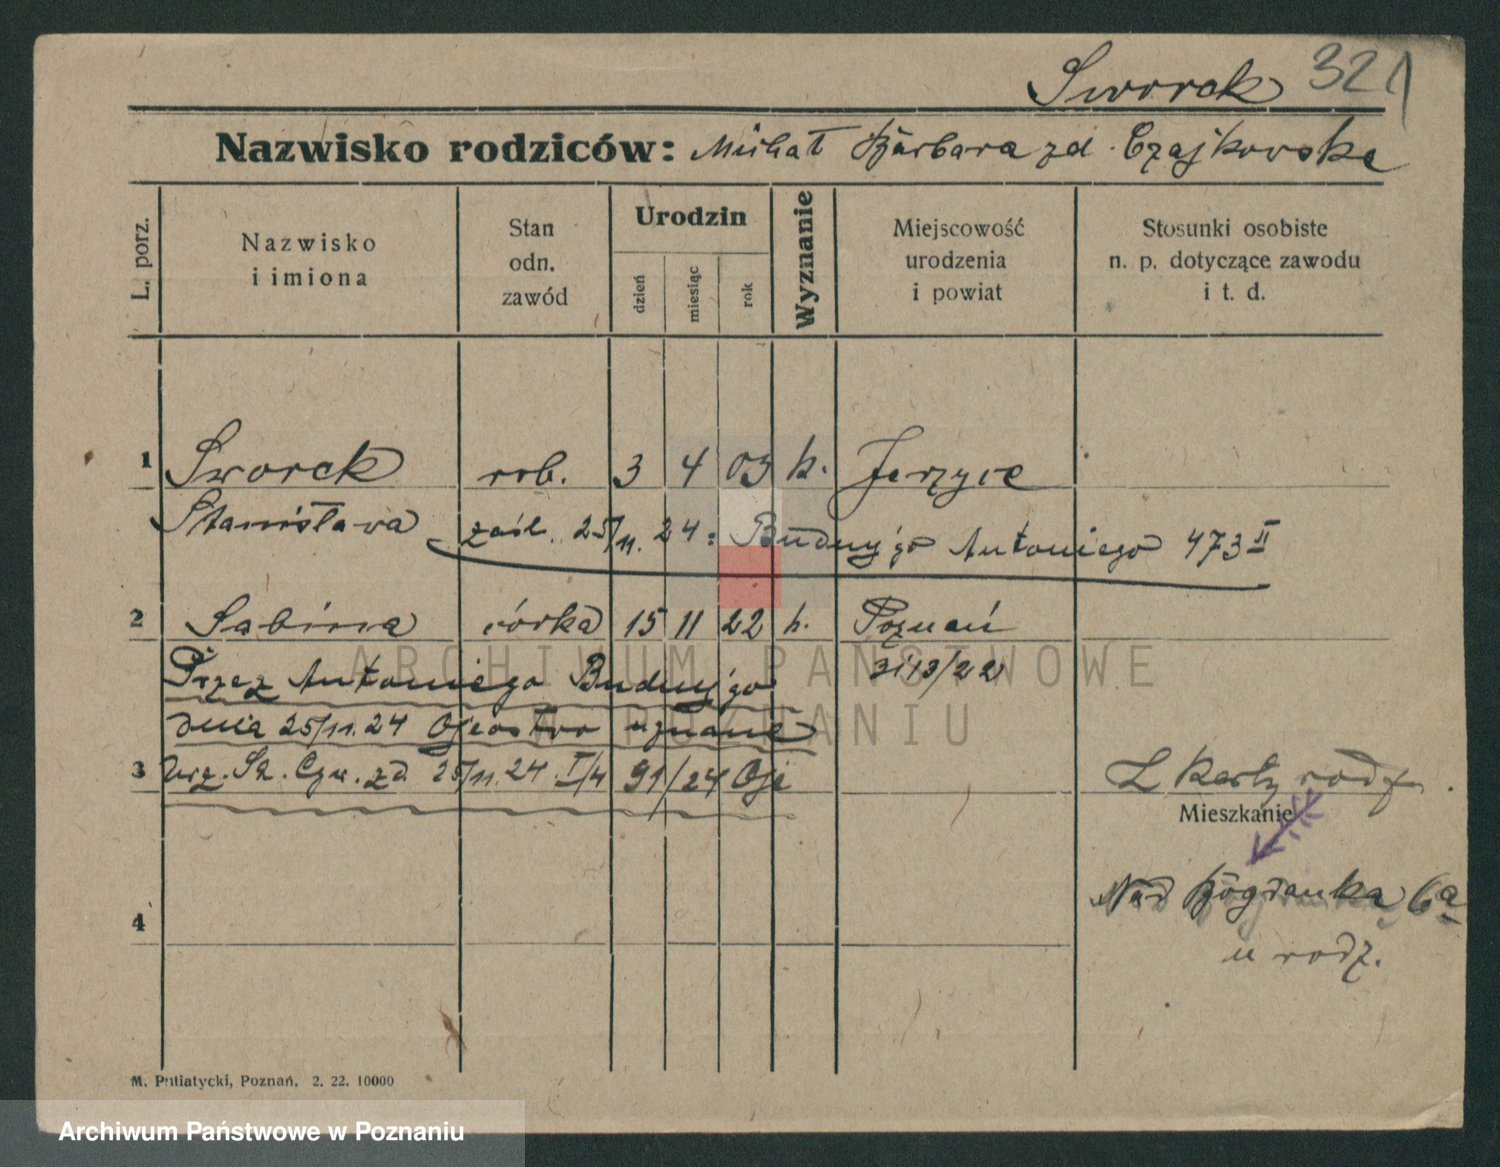 Sworek 321
Nazwisko rodziców: Michał Barbara zd. Czajkowska
L. porz.
Nazwisko i imiona
Stan odn. zawód
Urodzin
dzień
miesiąc
rok
Wyznanie
Miejscowość urodzenia i powiat
Stosunki osobiste n. p. dotyczące zawodu i t. d.
1 Sworek rob. 3 4 03 k. Jerzyce
Stanisława zaśl. 25/11. 24: Antoniego 473 II
2 Sabina córka 15 11 22 k. Poznań
Przez Antoniego
dnia 25/11. 24 Ojcostwo uznane
3 Urz. St. 25/11. 24 I/4 91/24 Ojc
Z karty rodz.
Mieszkanie
Nad Bogdanką 6a
4
u rodz.
M. Putiatycki, Poznań. 2. 22. 10000
ARCHIWUM PAŃSTWOWE
W POZNANIU
Archiwum Państwowe w Poznaniu